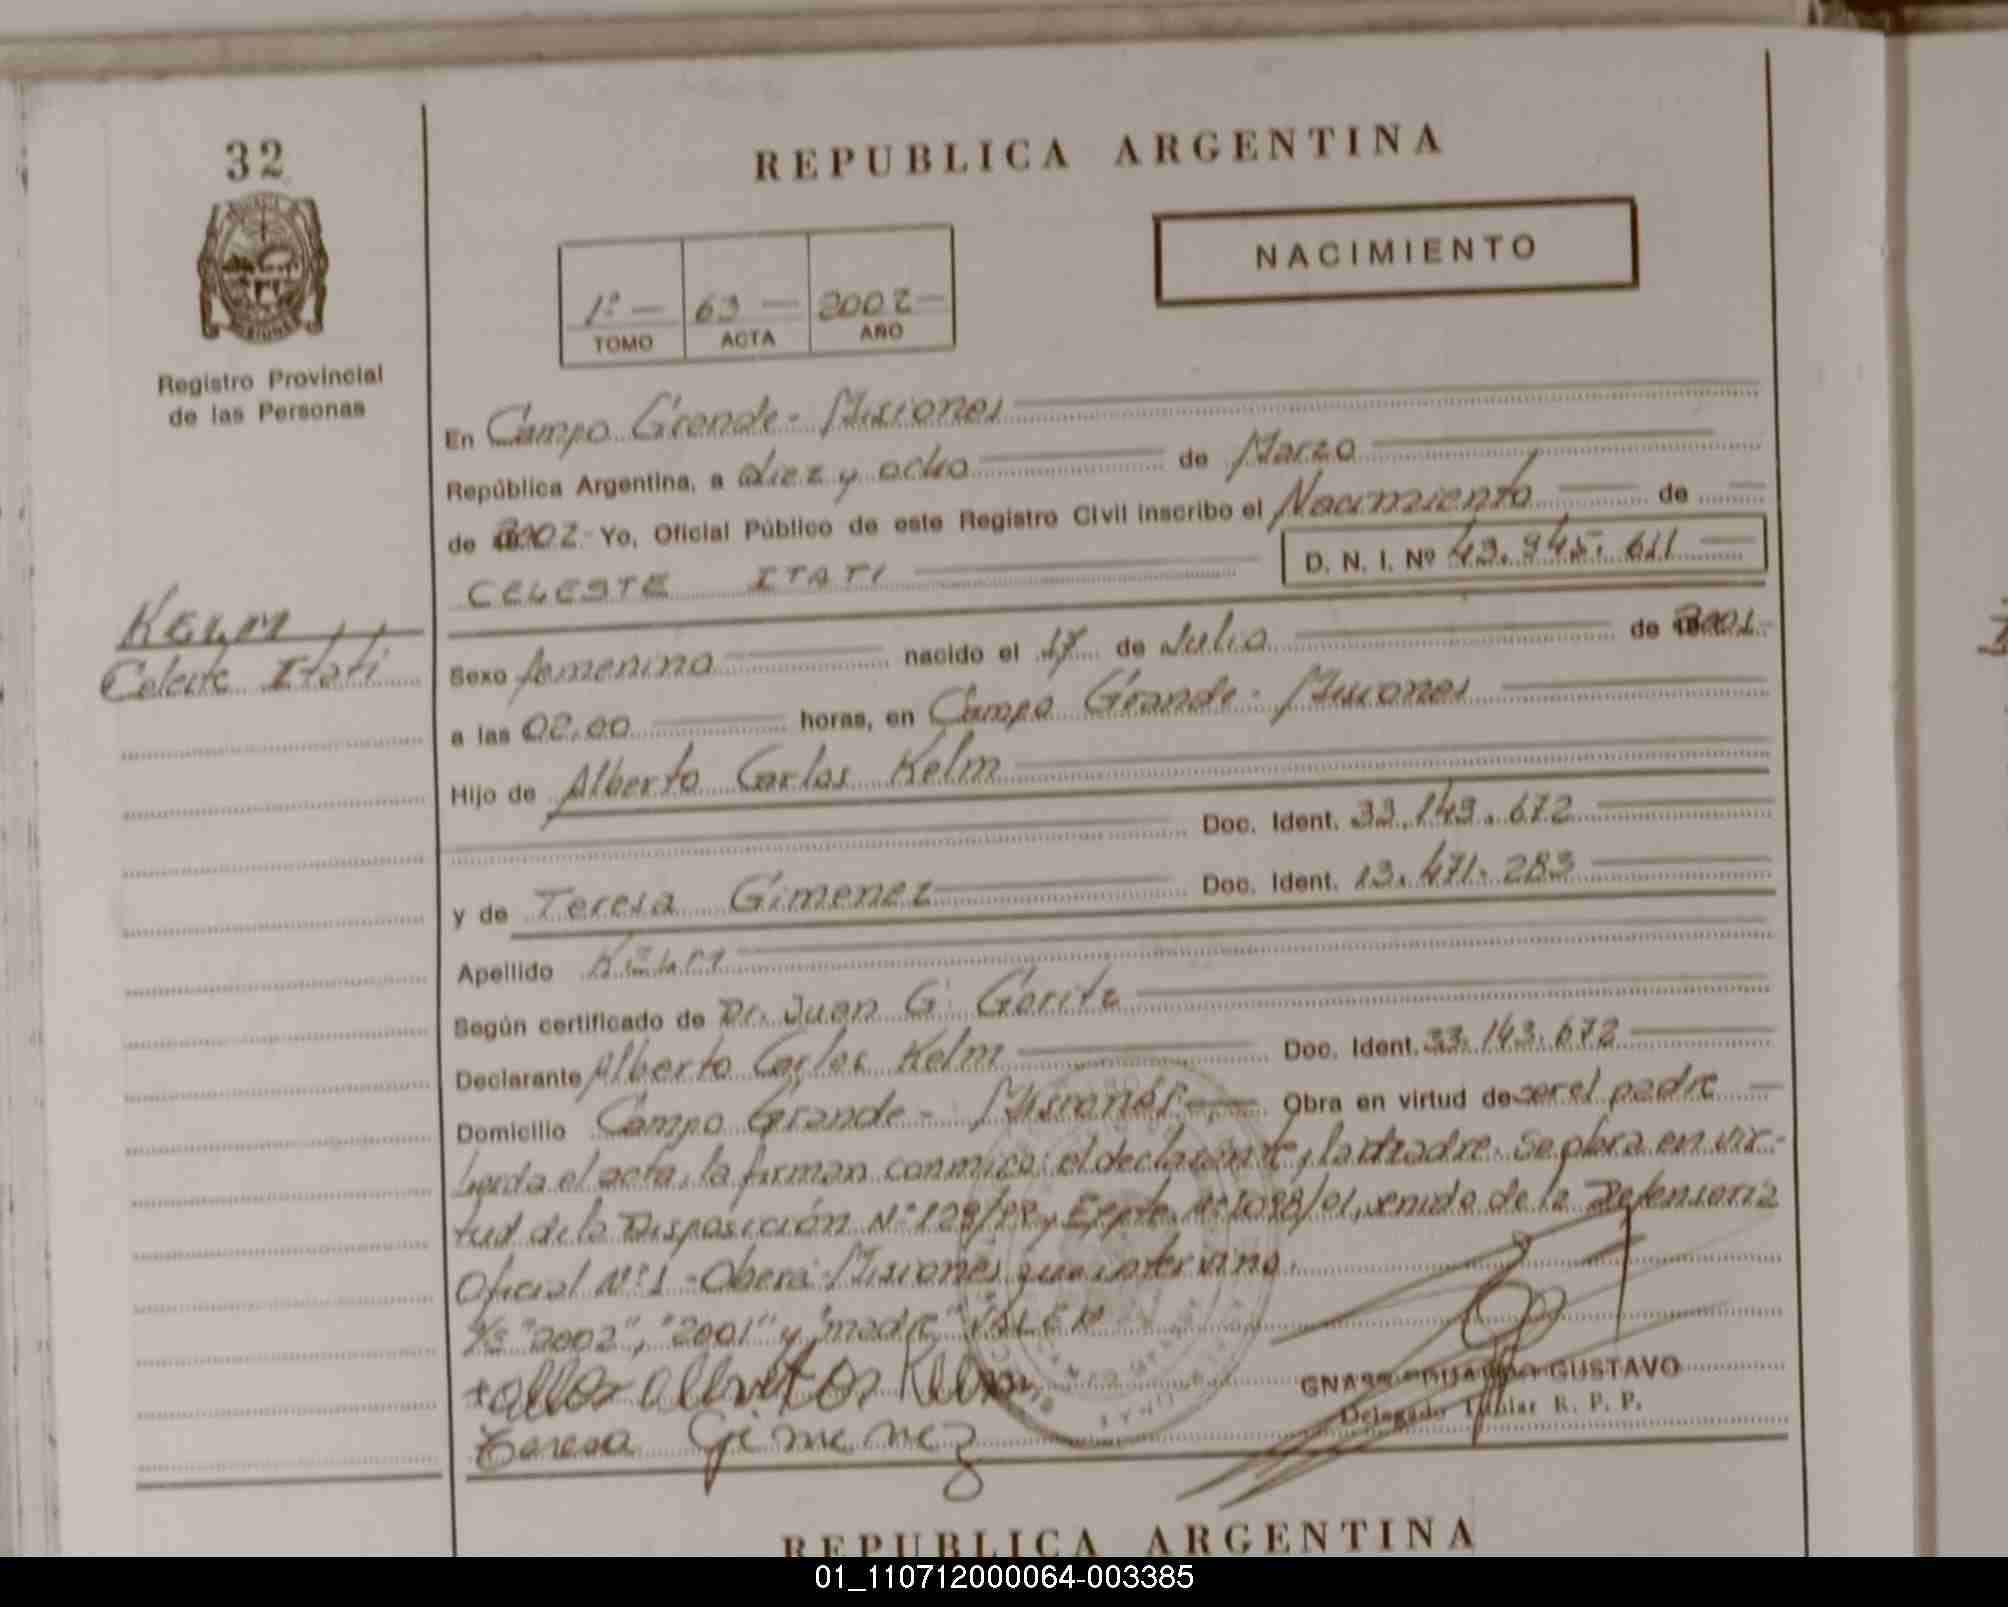 32
REPUBLICA ARGENTINA
NACIMIENTO
1º — 63 — 2002 —
TOMO ACTA AÑO
Registro Provincial
de las Personas
En Campo Grande - Misiones
República Argentina, a diez y ocho de Marzo
de 2002 - Yo, Oficial Público de este Registro Civil inscribo el Nacimiento de
CELESTE ITATI D. N. I. Nº 43.945.611
KELM
Celeste Itati
Sexo femenino nacido el 17 de Julio de 2001
a las 02,00 horas, en Campo Grande - Misiones
Hijo de Alberto Carlos Kelm
Doc. Ident. 33.143.672
y de Teresa Gimenez Doc. Ident. 13.471.283
Apellido KELM
Según certificado de Dr. Juan G.
Declarante Alberto Carlos Kelm Doc. Ident. 33.143.672
Domicilio Campo Grande - Misiones Obra en virtud de ser el padre
leida el acta, la firman conmigo: el declarante y la madre. Se obra en vir-
tud de la Disposición Nº y Expte. Nº 1098/01, venido de la Defensoria
Oficial Nº 1 - Obera - Misiones que intervino.
"2002", "2001" y "madre" VALEN
Kelm
Teresa Gimenez
GUSTAVO
Delegado Titular R. P. P.
REPUBLICA ARGENTINA
01_110712000064-003385